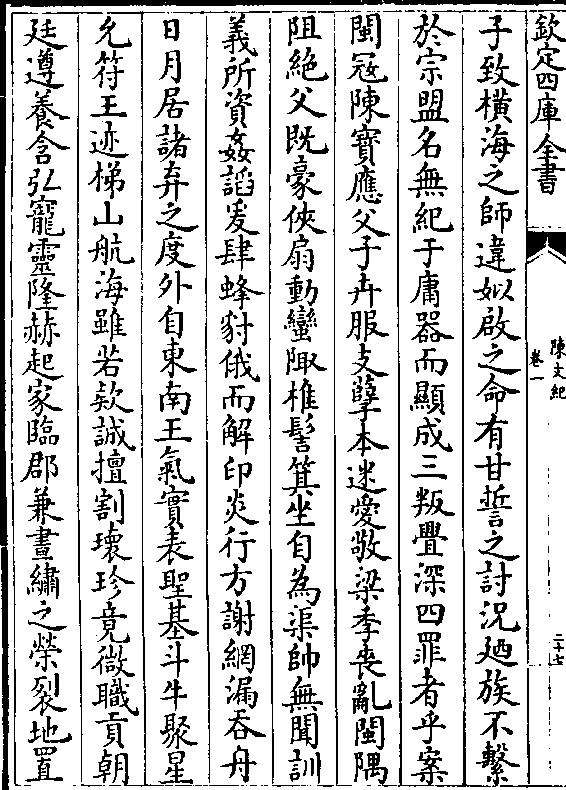 欽定四庫全書
陳文紀
卷一
二十七
子致橫海之師違姒啟之命有甘誓之討況廼族不繫
於宗盟名無紀于庸器而顯成三叛舋深四罪者乎案
閩冦陳寶應父子卉服支孽本迷愛敬梁季喪亂閩隅
阻絕父既豪俠扇動蠻陬椎髻箕坐自為渠帥無聞訓
義所資姦謟爰肆蜂豺俄而解印炎行方謝網漏吞舟
日月居諸弃之度外自東南王氣實表聖基斗牛聚星
允符王迹梯山航海雖若欵誠擅割瓌珍竟微職貢朝
廷遵養含弘寵靈隆赫起家臨郡兼晝繡之榮裂地置